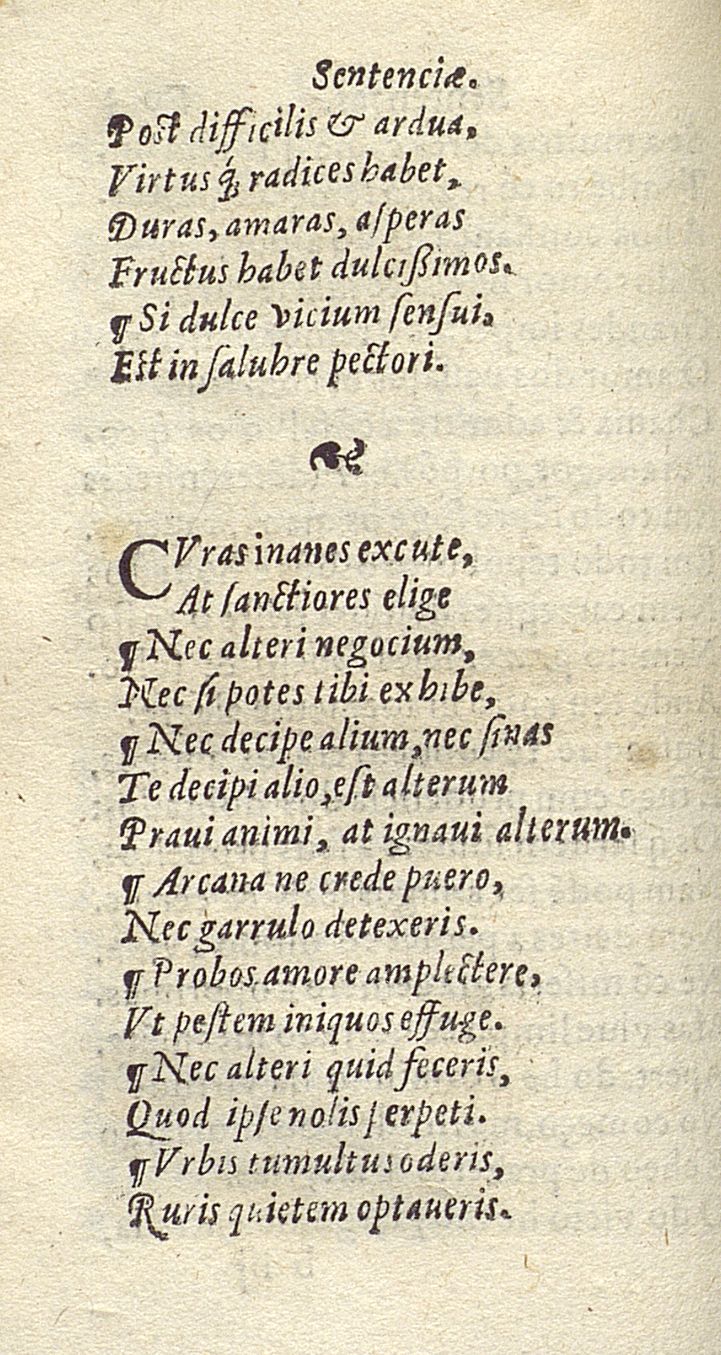 Sentenciæ.
Post difficilis & ardua,
Virtus q́; radices habet,
Duras, amaras, aſperas
Fructus habet dulcißimos.
¶ Si dulce vicium ſenſui,
Eſt in ſalubre pectori.
❧
CVras inanes excute,
At ſanctiores elige
¶ Nec alteri negocium,
Nec ſi potes tibi exhibe,
¶ Nec decipe alium, nec ſinas
Te decipi alio, eſt alterum
Praui animi, at ignaui alterum.
¶ Arcana ne crede puero,
Nec garrulo detexeris.
¶ Probos amore amplectere,
Vt peſtem iniquos effuge.
¶ Nec alteri quid feceris,
Quod ipſe nolis perpeti.
¶ Vrbis tumultus oderis,
Ruris quietem optaueris.